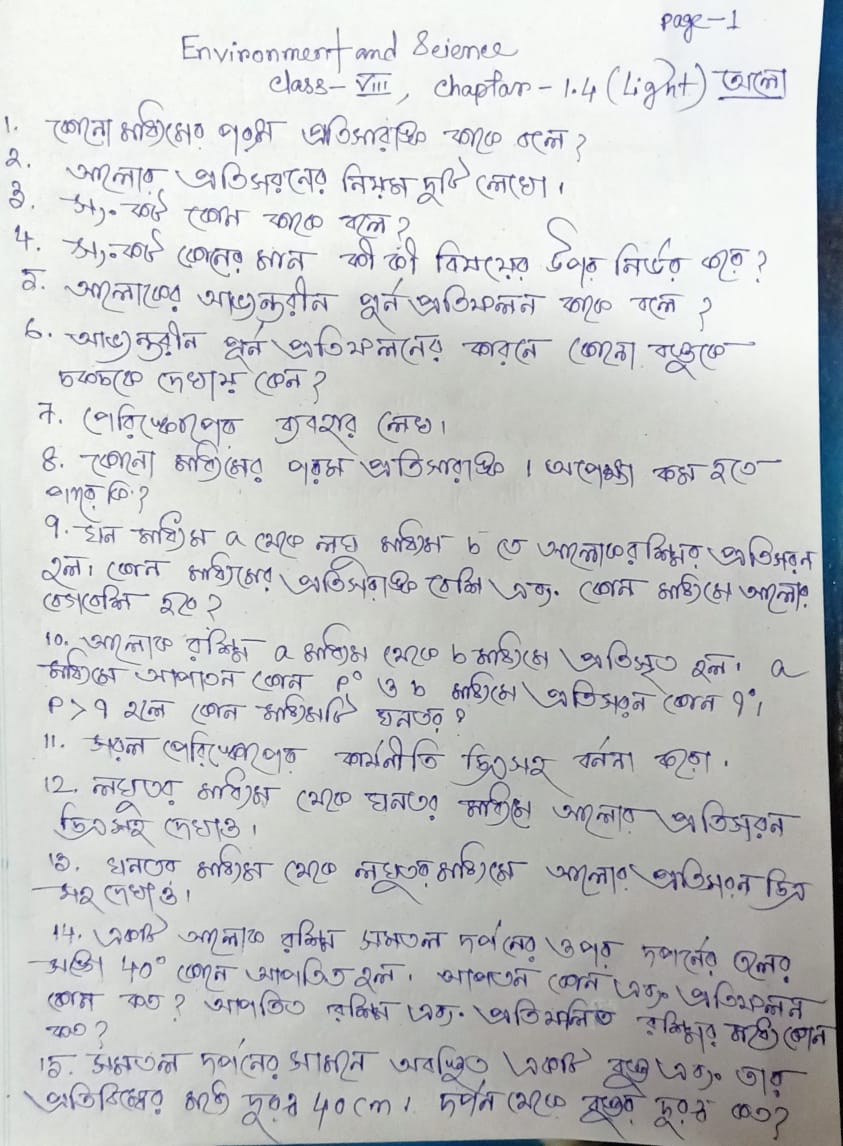 page-1
Environment and Science
class- VIII, Chapter - 1.4 (Light) আলো
1. কোনো মাধ্যমের পরম প্রতিসরাঙ্ক কাকে বলে?
2. আলোর প্রতিসরনের নিয়ম দুটি লেখো।
3. সংকট কোন কাকে বলে?
4. সংকট কোনের মান কী কী বিষয়ের উপর নির্ভর করে?
5. আলোকের আভ্যন্তরীন পূর্ন প্রতিফলন কাকে বলে?
6. আভ্যন্তরীন পূর্ন প্রতিফলনের কারনে কোনো বস্তুকে
চকচকে দেখায় কেন?
7. পেরিস্কোপের ব্যবহার লেখ।
8. কোনো মাধ্যমের পরম প্রতিসরাঙ্ক 1 অপেক্ষা কম হতে
পারে কি?
9. ঘন মাধ্যম a থেকে লঘু মাধ্যম b তে আলোকরশ্মির প্রতিসরন
হল। কোন মাধ্যমের প্রতিসরাঙ্ক বেশি এবং কোন মাধ্যমে আলোর
বেগ বেশি হবে?
10. আলোক রশ্মি a মাধ্যম থেকে b মাধ্যমে প্রতিসৃত হল। a
মাধ্যমে আপাতন কোন p° ও b মাধ্যমে প্রতিসরন কোন q°।
p > q হলে কোন মাধ্যমটি ঘনতর?
11. সরল পেরিস্কোপের কার্যনীতি চিত্রসহ বর্ননা করো।
12. লঘুতর মাধ্যম থেকে ঘনতর মাধ্যমে আলোর প্রতিসরন
চিত্রসহ দেখাও।
13. ঘনতর মাধ্যম থেকে লঘুতর মাধ্যমে আলোর প্রতিসরন চিত্র
সহ দেখাও।
14. একটি আলোক রশ্মি সমতল দর্পনের ওপর দর্পনের তলের
সঙ্গে 40° কোনে আপতিত হল। আপতন কোন এবং প্রতিফলন
কোন কত? আপতিত রশ্মি এবং প্রতিফলিত রশ্মির মধ্যে কোন
কত?
15. সমতল দর্পনের সামনে অবস্থিত একটি বস্তু এবং তার
প্রতিবিম্বের মধ্যে দূরত্ব 40 cm। দর্পন থেকে বস্তুর দূরত্ব কত?